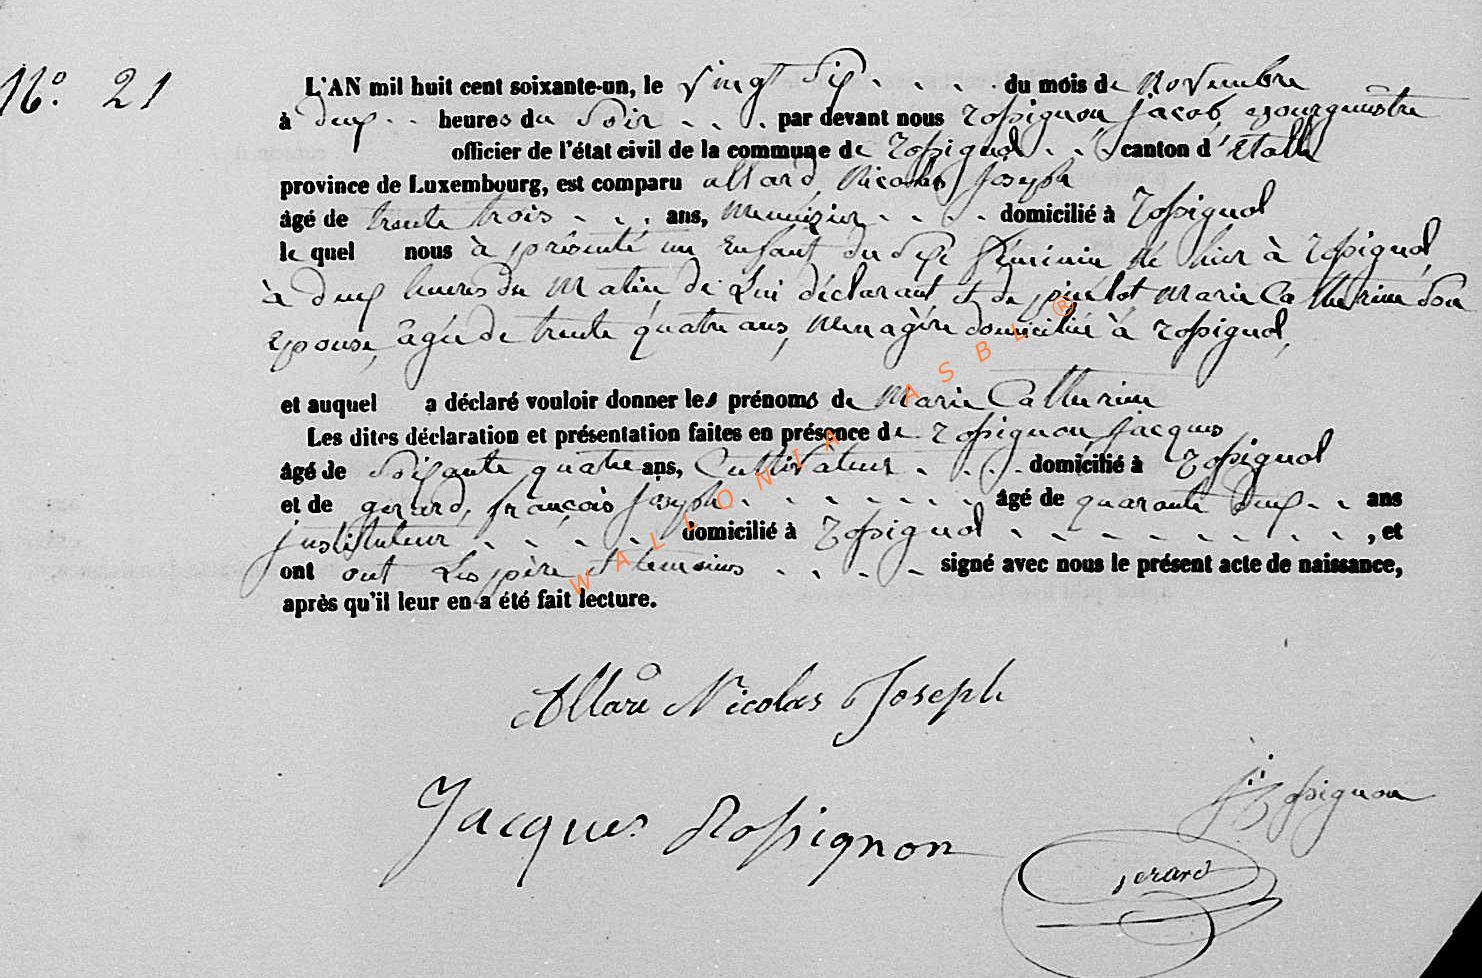 N.° 21
L'AN mil huit cent soixante-un, le vingt Six . . . . du mois de Novembre
à deux . . heures du Soir . . . . par devant nous Rossignon, Jacob, Bourguêstre
officier de l'état civil de la commune de Rossignol . . canton d'Etalle
province de Luxembourg, est comparu allard, Nicolas Joseph
âgé de trente trois . . . . ans, Menuisier . . . . domicilié à Rossignol
le quel nous à présenté un Enfant du Sexe féminin né hier à Rossignol,
à deux heures du Matin, de Lui déclarant et de pierlot Marie Catherine Son
Epouse, âgée de trente quatre ans, Menagère domiciliée à Rossignol,
et auquel a déclaré vouloir donner les prénoms de Marie Catherine
Les dites déclaration et présentation faites en présence de Rossignon, Jacques
âgé de Soixante quatre ans, Cultivateur . . . . domicilié à Rossignol
et de gerard, françois Joseph . . . . . . . . âgé de quarante deux . . ans
Instituteur . . . . . domicilié à Rossignol . . . . . . . . . , et
ont ont Les père et temoins . . . . . signé avec nous le présent acte de naissance,
après qu'il leur en a été fait lecture.
Allard Nicolas Joseph
J: Rossignon
Jacques Rossignon
Gerard
WALLONIA ASBL ®